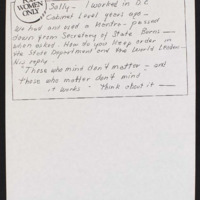 WOMEN
ONLY
Sally - I worked in D.C
Cabinet Level years ago -
We had and used a mantra - passed
down from Secretary of State Burns
when asked - How do you keep order in
the State Department and the World Leaders -
His reply -
"Those who mind don't matter - and
those who matter don't mind
it works - Think about it